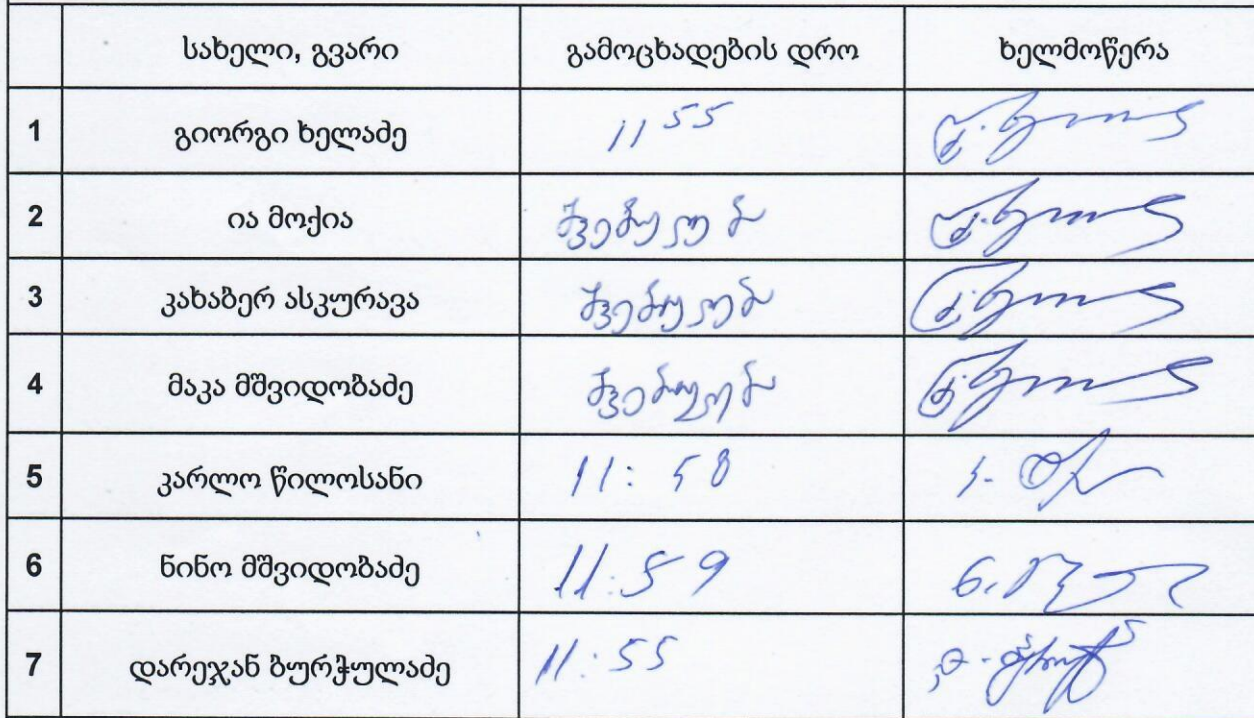 სახელი, გვარი გამოცხადების დრო ხელმოწერა
1 გიორგი ხელაძე 11 55
2 ია მოქია შვებულება
3 კახაბერ ასკურავა შვებულება
4 მაკა მშვიდობაძე შვებულება
5 კარლო წილოსანი 11:58
6 ნინო მშვიდობაძე 11:59
7 დარეჯან ბურჭულაძე 11:55